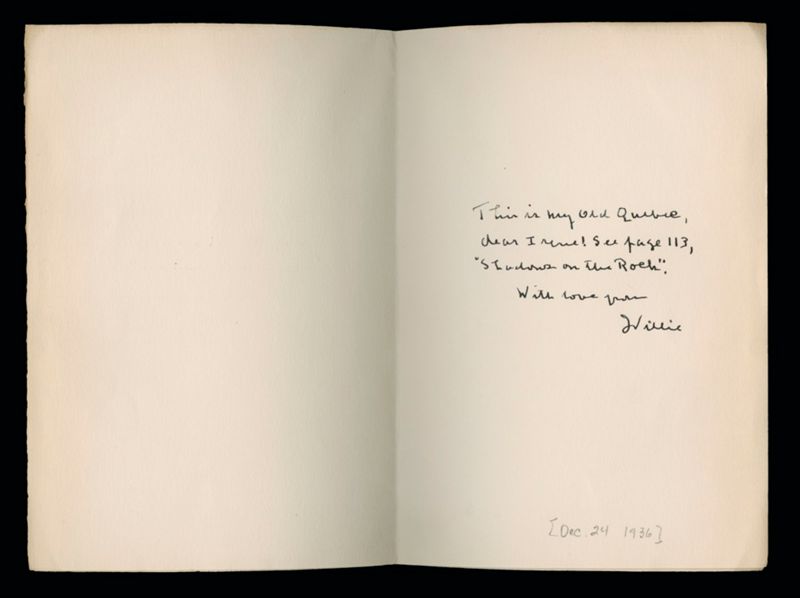 This is my Old Quebec,
dear Irene! See page 113,
"Shadows on the Rock".
With love from
Willie
[Dec. 24 1936]